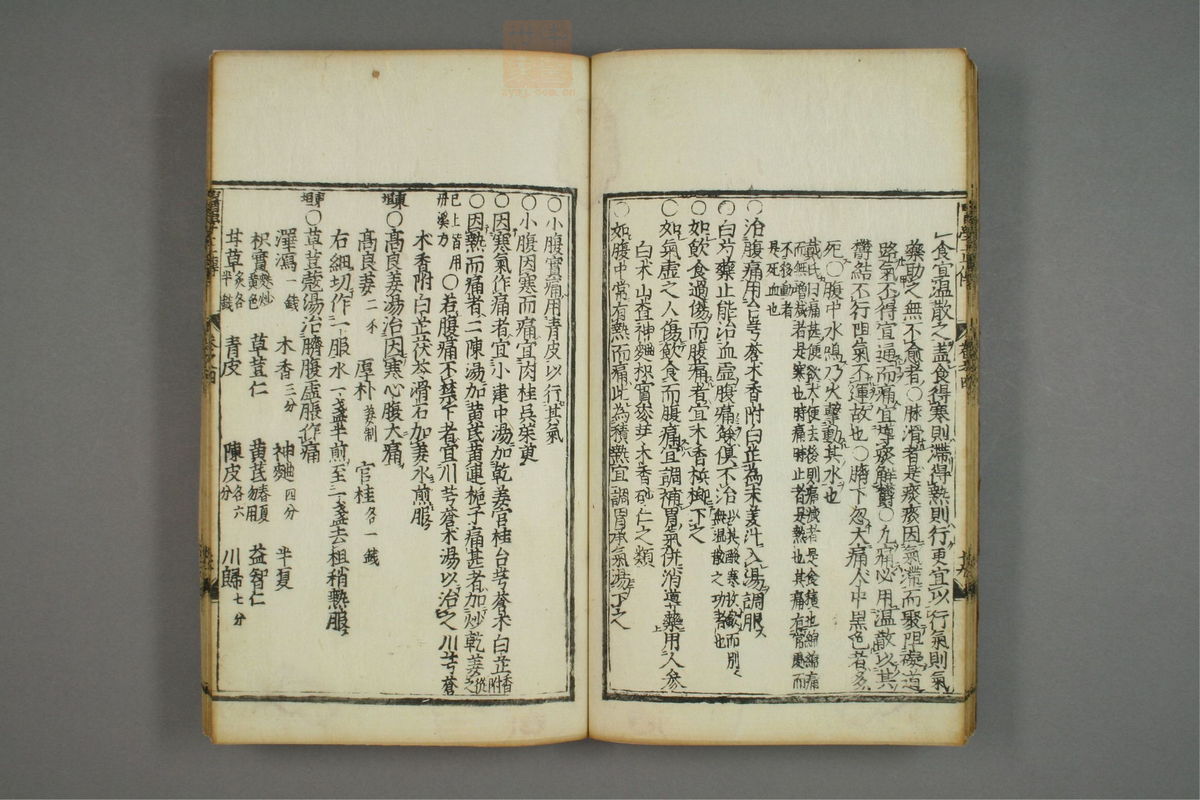 食宜温散之蓋食得寒則滯得熱則行更宜以行氣則氣
藥助之無不愈者○脉滑者是痰痰因氣滯而聚阻礙道
路氣不得宣通而痛宜導痰解鬱○凢痛必用温散以其
鬱結不行阻氣不運故也○臍下忽大痛人中黒色者多
死○腹中水鳴乃火擊動其水也
戴氏曰痛甚便欲大便去後則痛减者是食積也綿綿痛
而無增减者是寒也時痛時止者是熱也其痛有常處而
不移動者
是死血也
○治腹痛用台芎蒼术香附白芷為末姜汁入湯調服
○白芍藥止能治血虚腹痛餘俱不治以其酸寒收斂而别
無温散之功者也
○如飲食過傷而腹痛者宜木香梹榔丸下之
○如氣虚之人傷飲食而腹痛宜調補胃氣併消導藥用人參
白术山查神麯枳實麥芽木香砂仁之類
○如腹中常有熱而痛此為積熱宜調胃承氣湯下之
○小腹實痛用青皮以行其氣
○小腹因寒而痛宜肉桂吳茱萸
○因寒氣作痛者宜小建中湯加乾姜官桂台芎蒼术白芷香附
○因熱而痛者二陳湯加黄芩黄連梔子痛甚者加炒乾姜從之
已上皆用
丹溪方
○若腹痛不禁下者宜川芎蒼术湯以治之川芎蒼
术香附白芷茯苓滑石加姜水煎服
東垣○高良姜湯治因寒心腹大痛
高良姜二 厚朴姜制 官桂各一錢
右細切作一服水一盞半煎至一盞去柤稍熱服
東垣○草荳蔻湯治臍腹虚脹作痛
澤瀉一錢 木香三分 神麯四分 半夏
枳實麩炒黄色 草荳仁 黄芪春夏勿用 益智仁
甘草炙各半錢 青皮 陳皮各六分 川歸七分